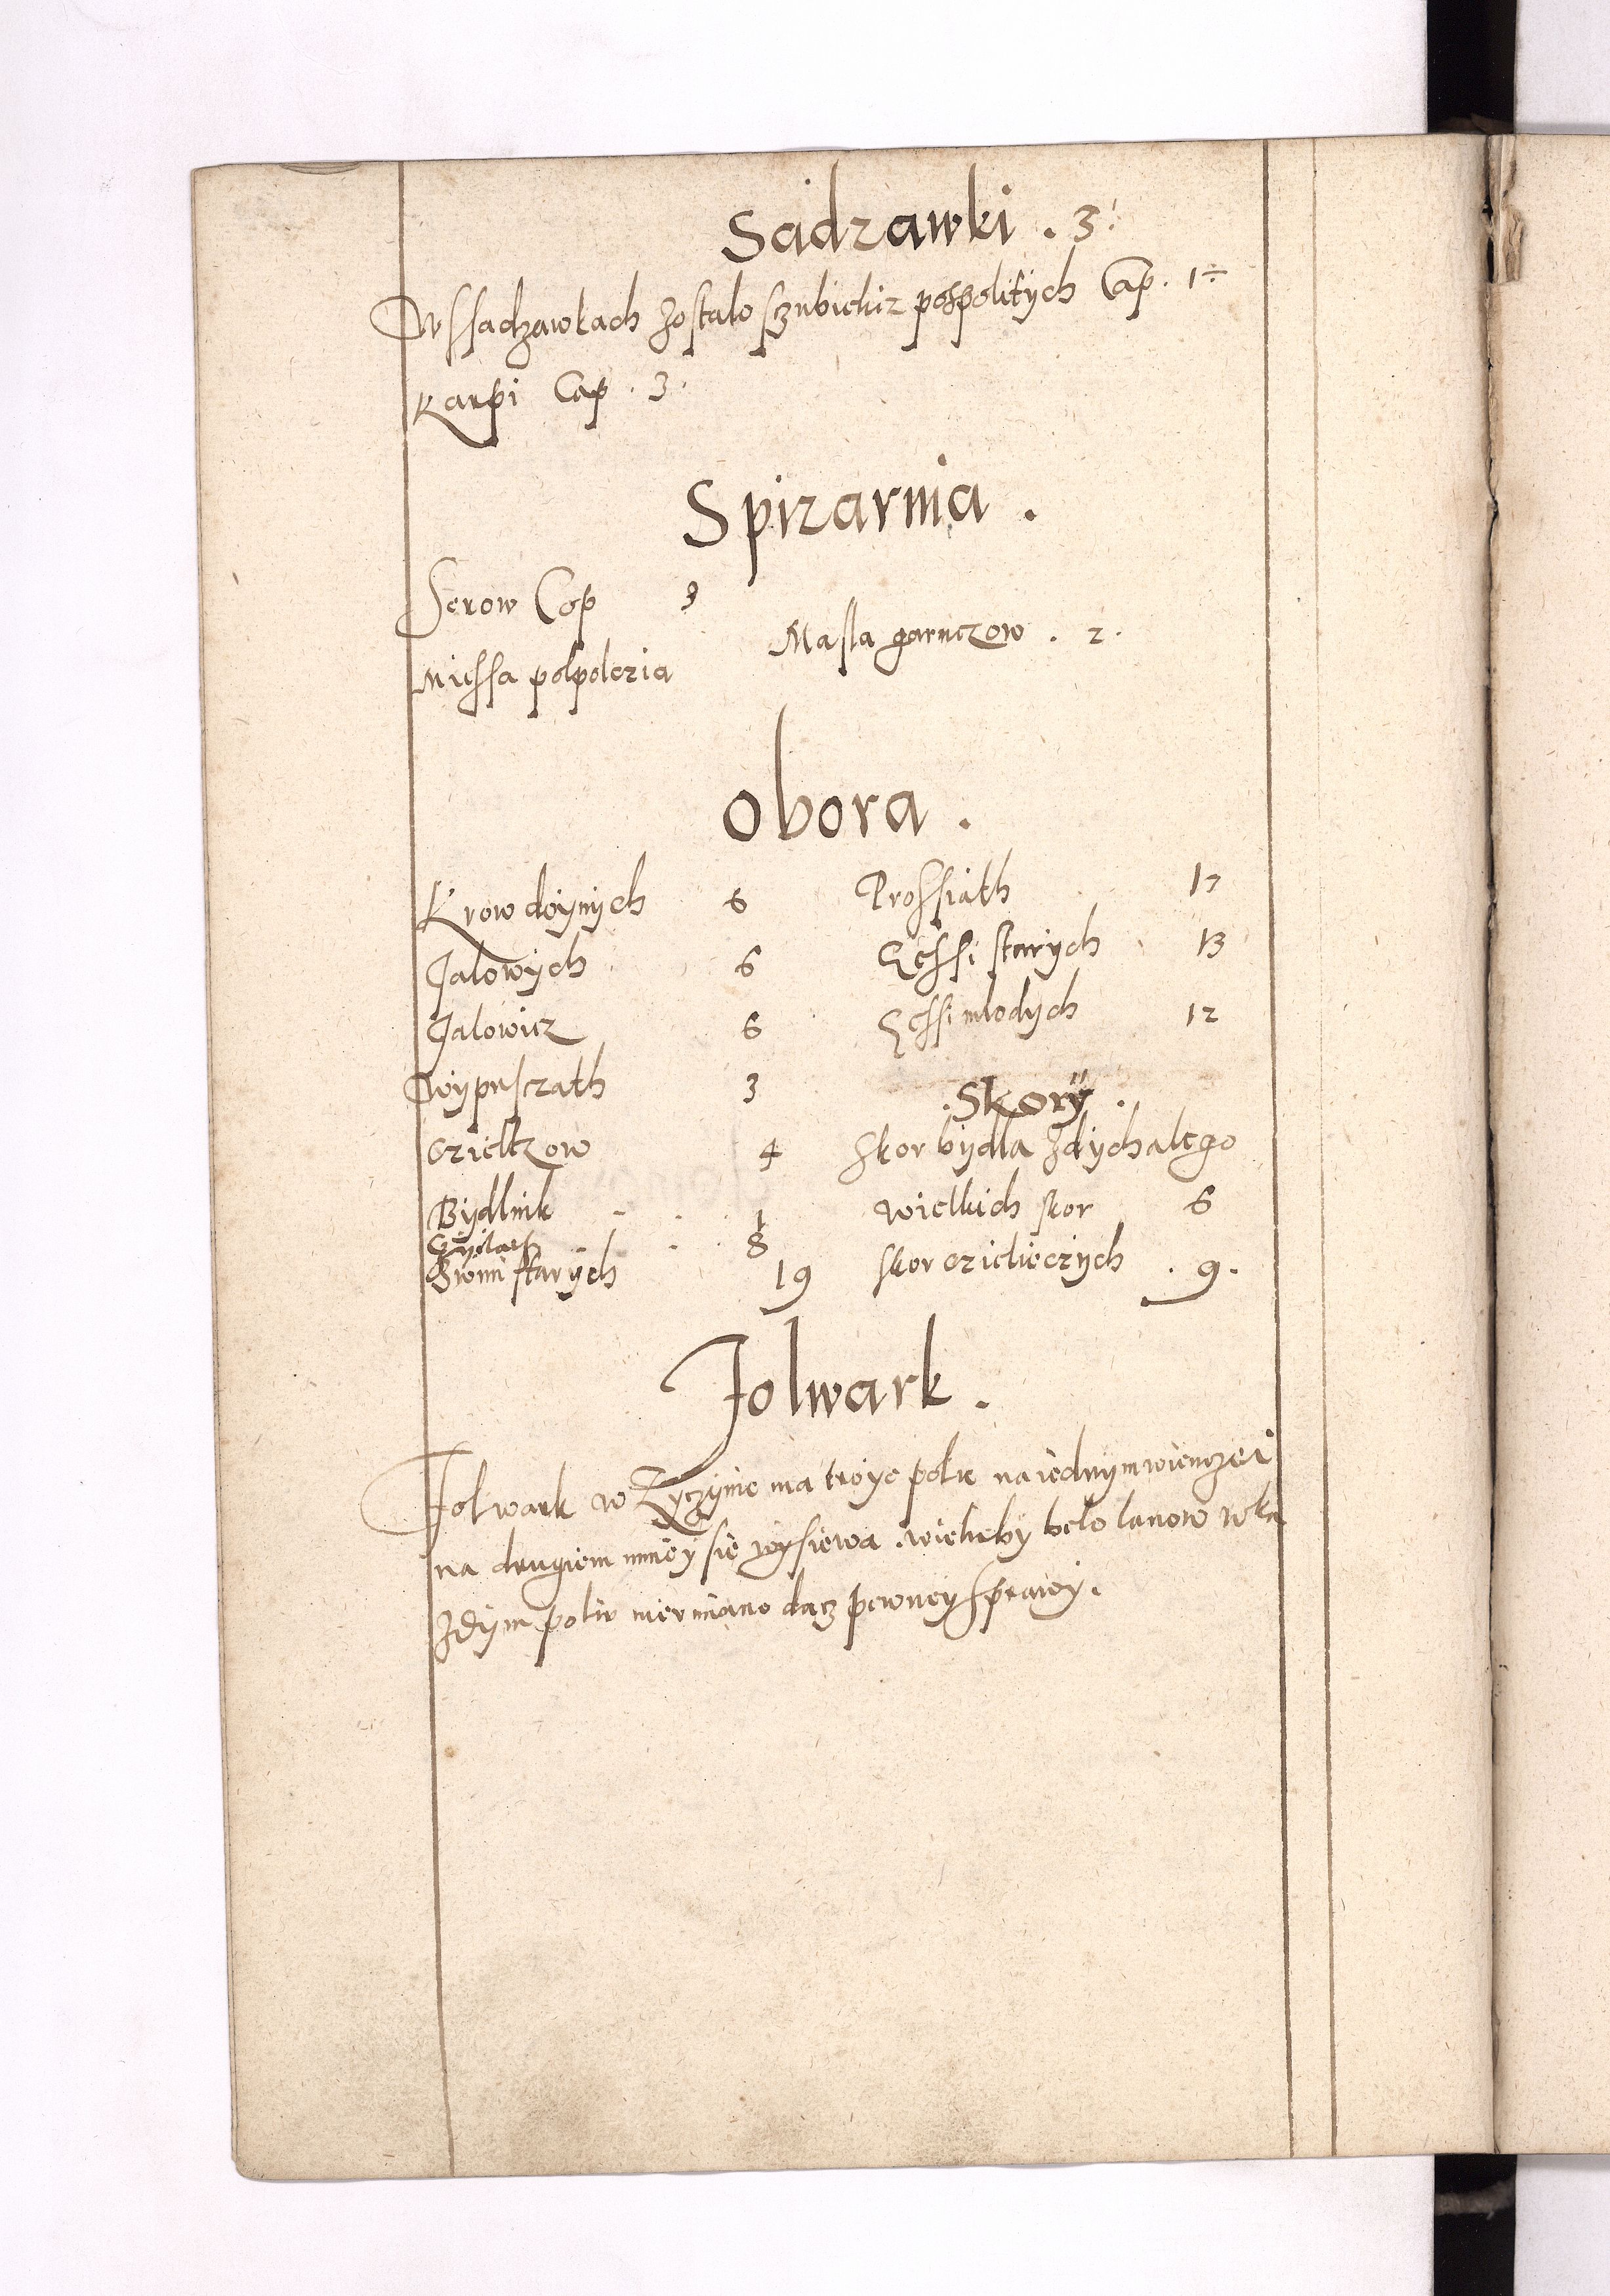 Sadzawki . 3.
W ssadzawkach zostalo sczubielir pospolitych Cap. 1÷
Karpi Cap . 3.
Spizarnia .
Serow Cop 3
Masla garnczow . 2.
Miessa polpolczia
Obora .
Krow doynych 6
Jalowych 6
Jalowicz 6
Wypusczath 3
Czieltzow 4
Bydlnik 1
8
Swini starych 19
Prossiath 17
Gessi starych 13
Gessi mlodych 12
. Skory .
Skor bydla zdychalego
wielkich skor 6
skor czielieczych . 9.
Folwark .
Folwark w Zyczynie ma troye pole na iednym wienczei
na drugiem mniey sie wysiewa . wieleby belo lanow w ka
zdym poliu niermiano dacz pewney sprawy.